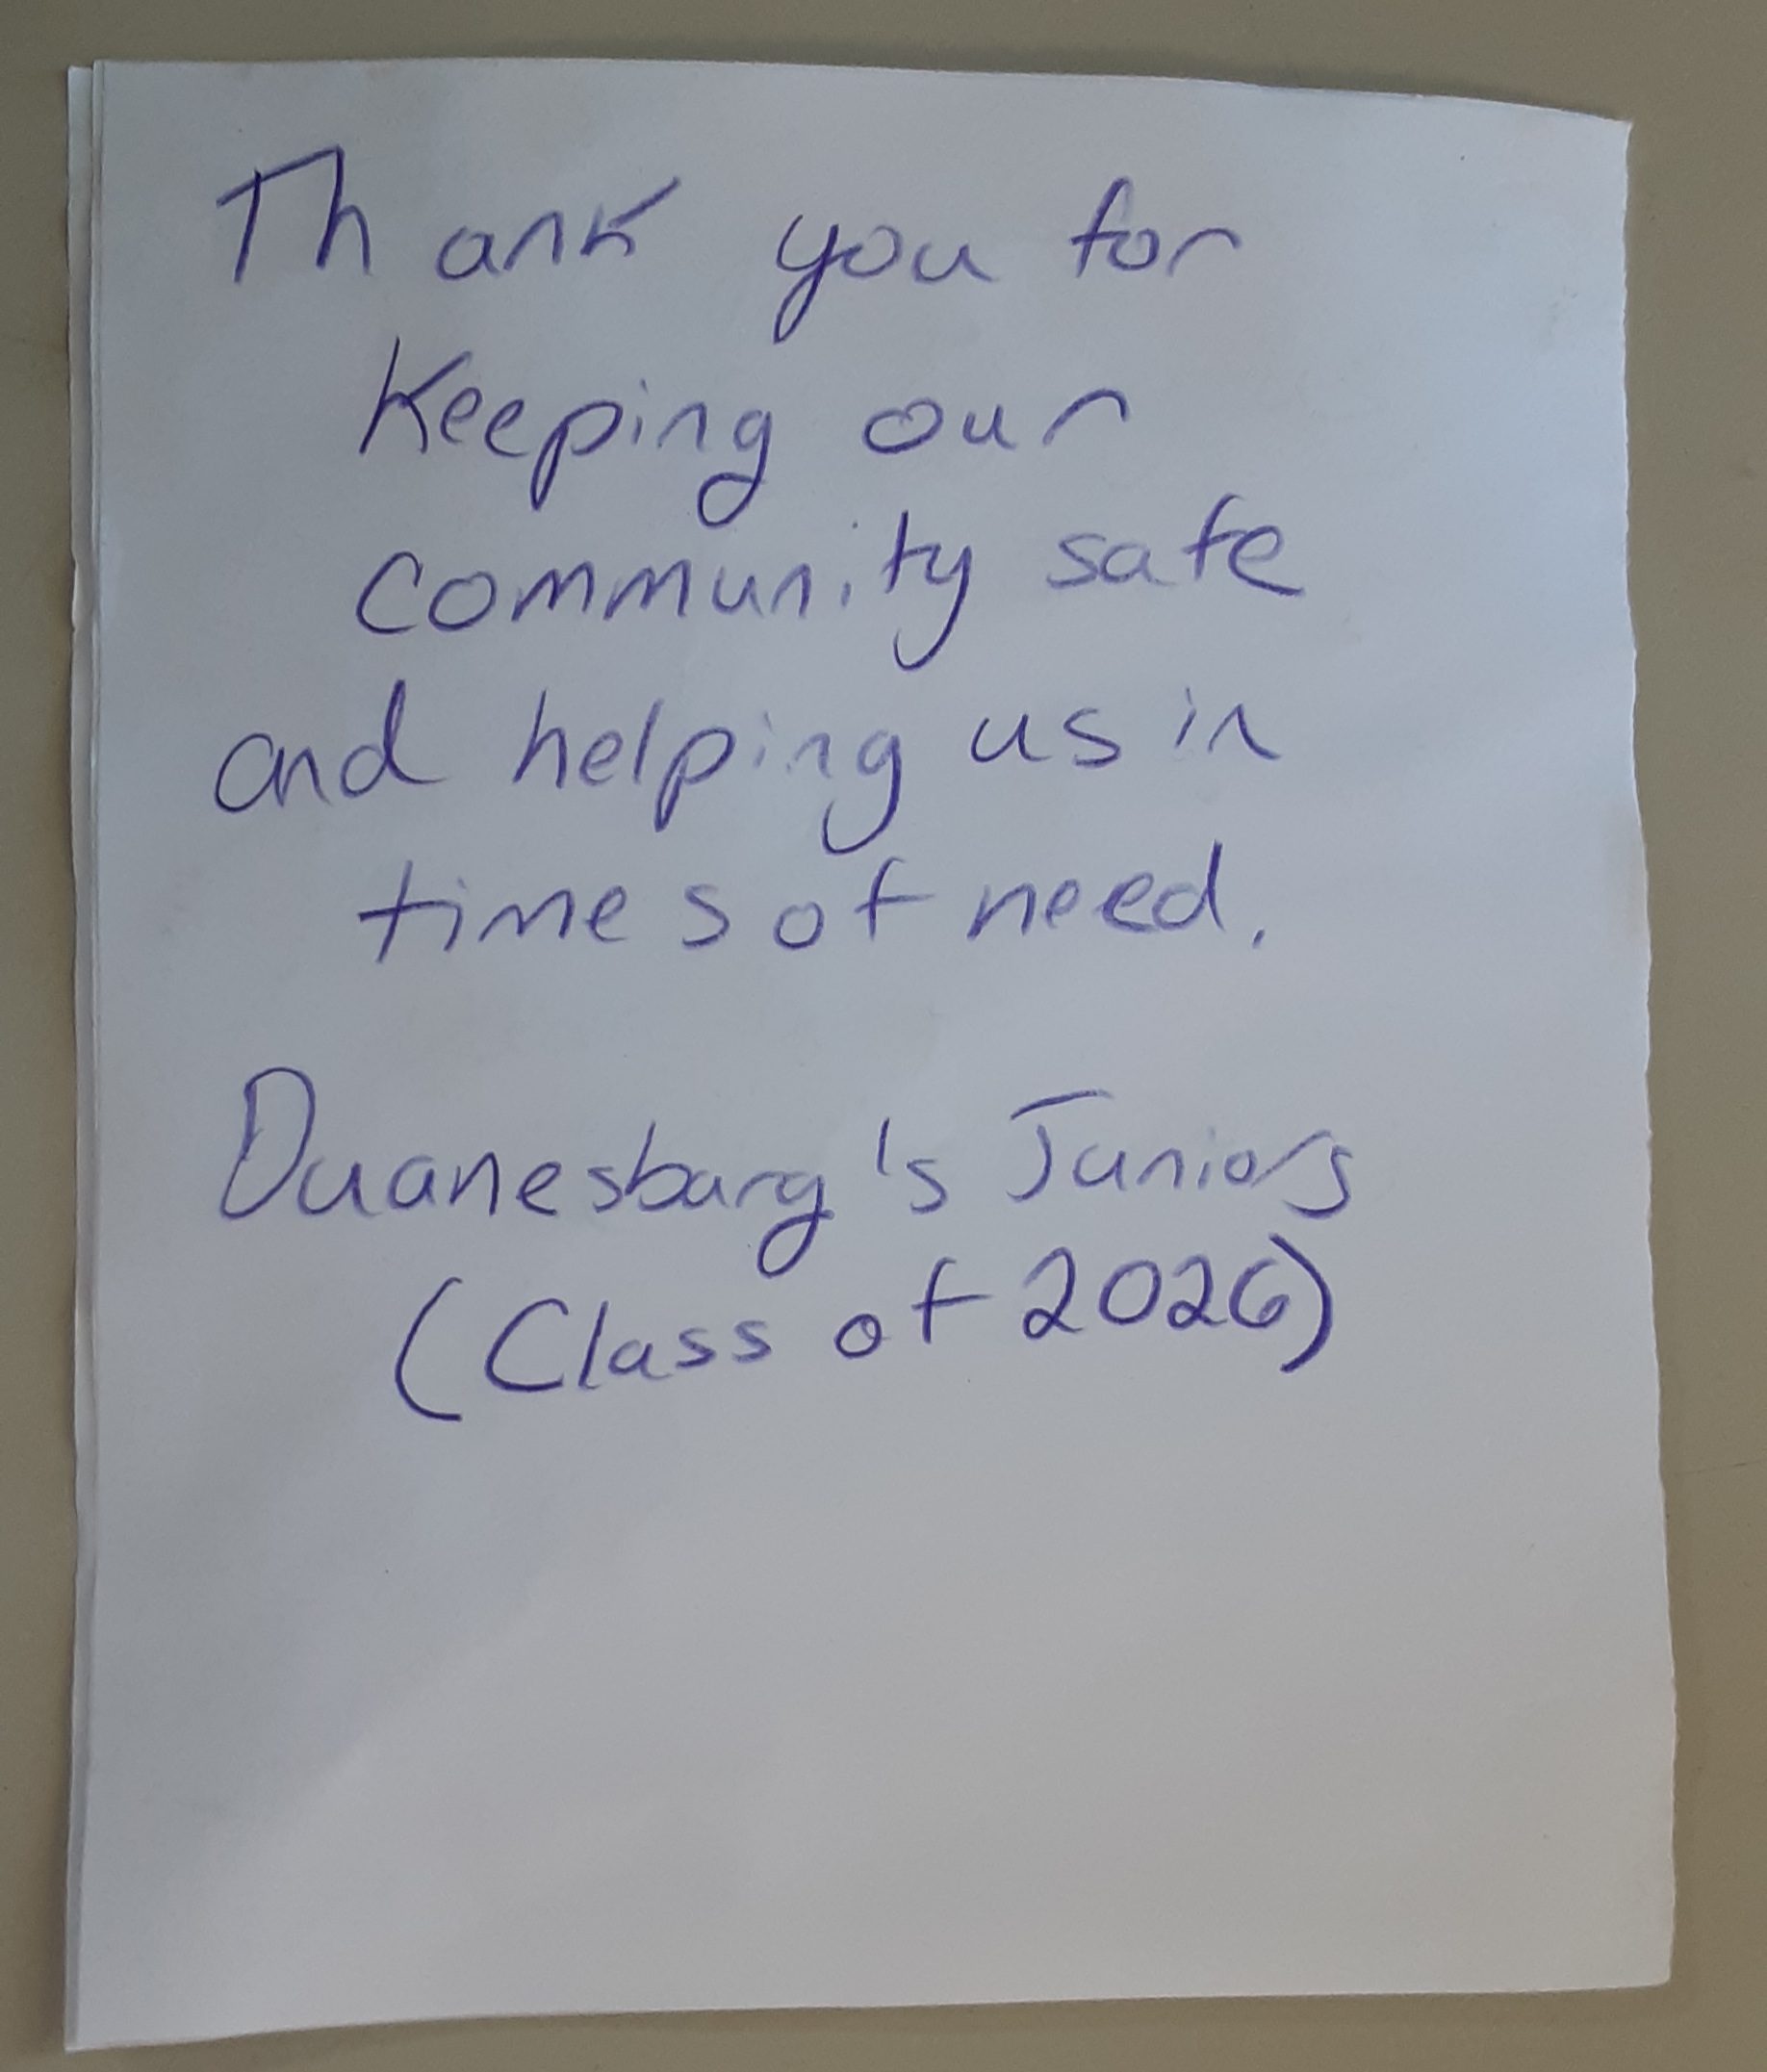 Thank you for
Keeping our
community safe
and helping us in
times of need.
Duanesburg's Juniors
(Class of 2026)